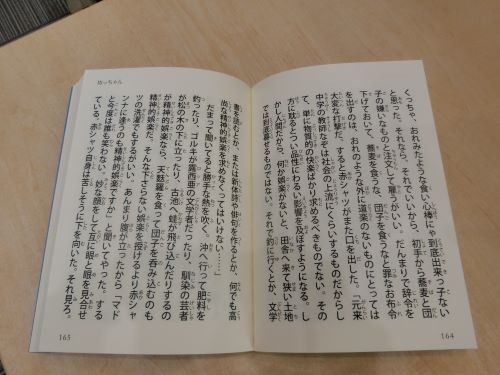 くっちゃ、おれみたような食い心棒にゃ到底出来っ子ない
と思った。それなら、それでいいから、初手から蕎麦と団
子の嫌いなものと注文して雇うがいい。だんまりで辞令を
下げておいて、蕎麦を食うな、団子を食うなと罪なお布令
を出すのは、おれのような外に道楽のないものにとっては
大変な打撃だ。すると赤シャツがまた口を出した。「元来
中学の教師なぞは社会の上流にくらいするものだからし
て、単に物質的の快楽ばかり求めるべきものでない。その
方に耽るとつい品性にわるい影響を及ぼすようになる。し
かし人間だから、何か娯楽がないと、田舎へ来て狭い土地
では到底暮せるものではない。それで釣に行くとか、文学
164
坊っちゃん
書を読むとか、または新体詩や俳句を作るとか、何でも高
尚な精神的娯楽を求めなくってはいけない……」
だまって聞いてると勝手な熱を吹く。沖へ行って肥料を
釣ったり、ゴルキが露西亜の文学者だったり、馴染の芸者
が松の木の下に立ったり、古池へ蛙が飛び込んだりするの
が精神的娯楽なら、天麩羅を食って団子を呑み込むのも
精神的娯楽だ。そんな下さらない娯楽を授けるより赤シャ
ツの洗濯でもするがいい。あんまり腹が立ったから「マド
ンナに逢うのも精神的娯楽ですか」と聞いてやった。する
と今度は誰も笑わない。妙な顔をして互に眼と眼を見合せ
ている。赤シャツ自身は苦しそうに下を向いた。それ見ろ。
165